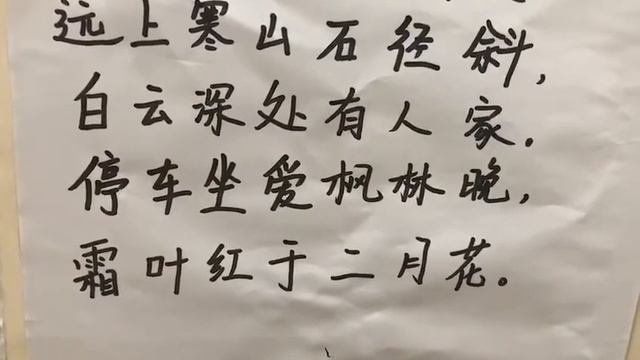 远上寒山石径斜,
白云深处有人家.
停车坐爱枫林晚,
霜叶红于二月花。